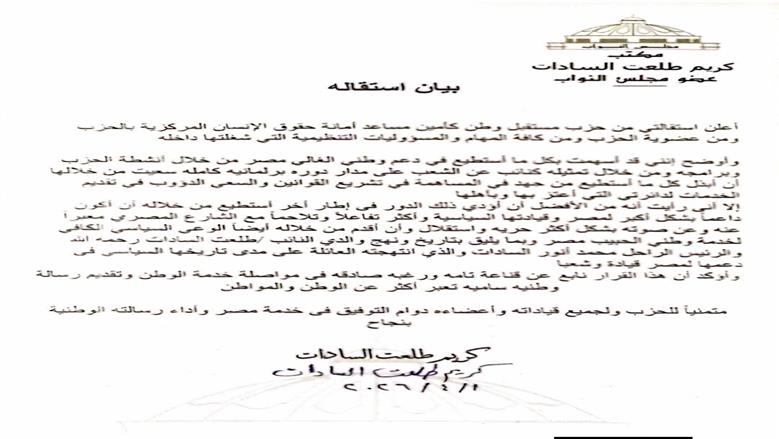 مجلس النواب
مكتب
كريم طلعت السادات
عضو مجلس النواب
بيان استقاله
أعلن استقالتي من حزب مستقبل وطن كأمين مساعد أمانة حقوق الإنسان المركزية بالحزب
ومن عضوية الحزب ومن كافة المهام والمسؤوليات التنظيمية التي شغلتها داخله
وأوضح إنني قد أسهمت بكل ما أستطيع في دعم وطني الغالي مصر من خلال أنشطة الحزب
وبرامجه ومن خلال تمثيله كنائب عن الشعب على مدار دوره برلمانيه كامله سعيت من خلالها
أن أبذل كل ما أستطيع من جهد في المساهمة في تشريع القوانين والسعي الدؤوب في تقديم
الخدمات لدائرتي التى أعتز بها وبأهلها
إلا أني رأيت أنه من الأفضل أن أؤدي ذلك الدور في إطار أخر أستطيع من خلاله أن أكون
داعماً بشكل أكبر لمصر وقيادتها السياسية وأكثر تفاعلاً وتلاحماً مع الشارع المصري معبراً
عنه وعن صوته بشكل أكثر حريه واستقلال وأن أقدم من خلاله أيضاً الوعى السياسي الكافى
لخدمة وطني الحبيب مصر وبما يليق بتاريخ ونهج والدي النائب /طلعت السادات رحمه الله
والرئيس الراحل محمد أنور السادات والذي انتهجته العائلة على مدى تاريخها السياسى فى
دعمها لمصر قيادة وشعبا
وأوكد أن هذا القرار نابع عن قناعة تامه ورغبه صادقه فى مواصلة خدمة الوطن وتقديم رسالة
وطنيه ساميه تعبر أكثر عن الوطن والمواطن
متمنياً للحزب ولجميع قياداته وأعضاءه دوام التوفيق فى خدمة مصر وأداء رسالته الوطنية
بنجاح
كريم طلعت السادات
كريم طلعت السادات
٢٠٢٦/٤/١